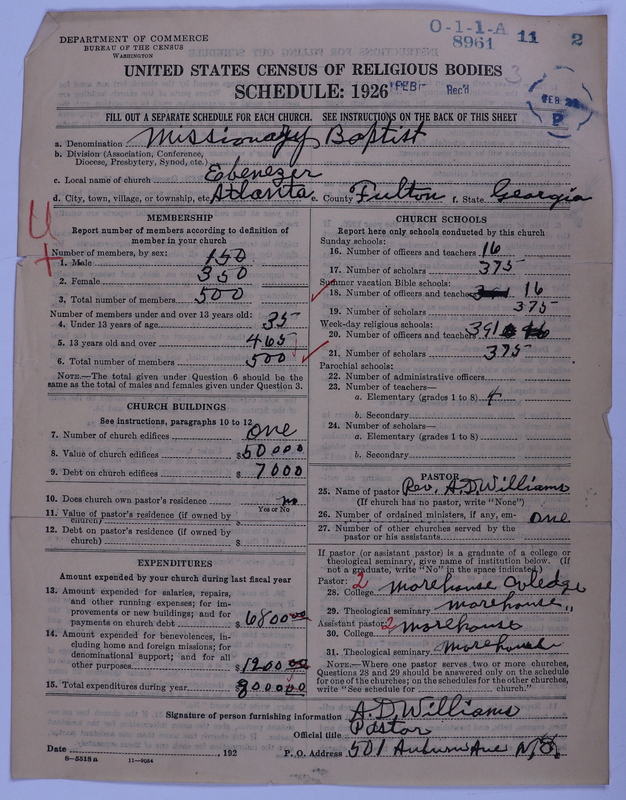 DEPARTMENT OF COMMERCE
BUREAU OF THE CENSUS
WASHINGTON
O-1-1-A 11 2
8961
UNITED STATES CENSUS OF RELIGIOUS BODIES
SCHEDULE: 1926
FEB Rec'd
FEB
P
FILL OUT A SEPARATE SCHEDULE FOR EACH CHURCH. SEE INSTRUCTIONS ON THE BACK OF THIS SHEET
a. Denomination Missionary Baptist
b. Division (Association, Conference, Diocese, Presbytery, Synod, etc.)
c. Local name of church Ebenezer
d. City, town, village, or township, etc. Atlanta e. County Fulton f. State Georgia
MEMBERSHIP
Report number of members according to definition of
member in your church
Number of members, by sex:
1. Male 150
2. Female 350
3. Total number of members 500
Number of members under and over 13 years old:
4. Under 13 years of age 35
5. 13 years old and over 465
6. Total number of members 500
NOTE.—The total given under Question 6 should be
same as the total of males and females given under Question 3.
CHURCH BUILDINGS
See instructions, paragraphs 10 to 12
7. Number of church edifices One
8. Value of church edifices $50000
9. Debt on church edifices $7000
10. Does church own pastor's residence no
Yes or No
11. Value of pastor's residence (if owned by
church) $
12. Debt on pastor's residence (if owned by
church) $
EXPENDITURES
Amount expended by your church during last fiscal year
13. Amount expended for salaries, repairs,
and other running expenses; for im-
provements or new buildings; and for
payments on church debt $6800
14. Amount expended for benevolences, in-
cluding home and foreign missions; for
denominational support; and for all
other purposes $1200
15. Total expenditures during year $8000
CHURCH SCHOOLS
Report here only schools conducted by this church
Sunday schools:
16. Number of officers and teachers 16
17. Number of scholars 375
Summer vacation Bible schools:
18. Number of officers and teachers 16
19. Number of scholars 375
Week-day religious schools:
20. Number of officers and teachers 391
21. Number of scholars 375
Parochial schools:
22. Number of administrative officers
23. Number of teachers—
a. Elementary (grades 1 to 8) 4
b. Secondary
24. Number of scholars—
a. Elementary (grades 1 to 8)
b. Secondary
PASTOR
25. Name of pastor Rev. A.D. Williams
(If church has no pastor, write "None")
26. Number of ordained ministers, if any, em- One
27. Number of other churches served by the
pastor or his assistants
If pastor (or assistant pastor) is a graduate of a college or
theological seminary, give name of institution below. (If
not a graduate, write "No" in the space indicated)
Pastor: 2
28. College morehouse Colledge
29. Theological seminary morehouse "
Assistant pastor: 2
30. College morehouse
31. Theological seminary morehouse
NOTE.—Where one pastor serves two or more churches,
Questions 28 and 29 should be answered only on the schedule
for one of the churches; on the schedules for the other churches,
write "See schedule for church."
Signature of person furnishing information A.D. Williams
Official title Pastor
Date , 192 P. O. Address 501 Auburn Ave N.E.
8—5518a 11—9054